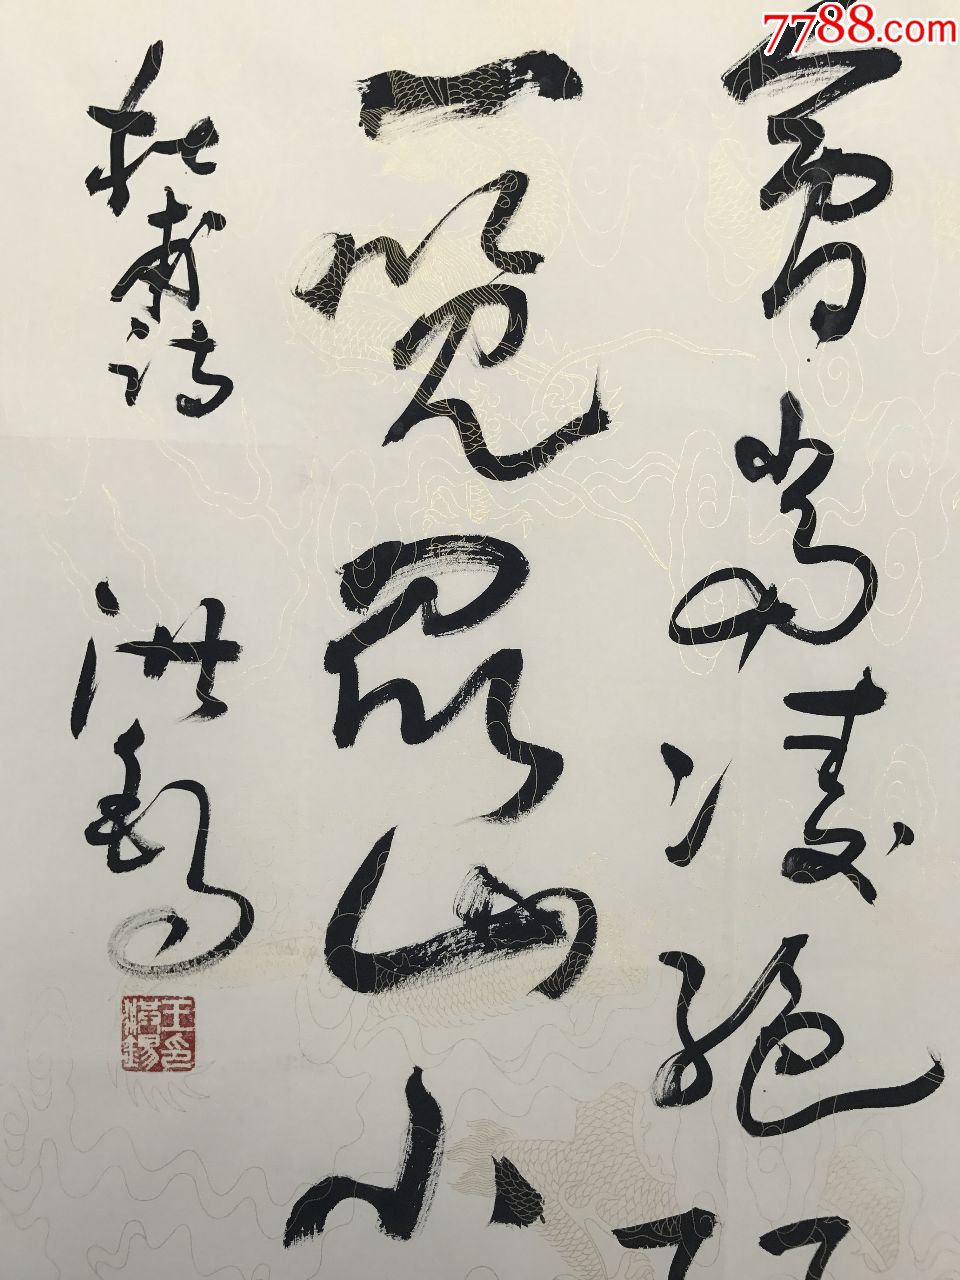 7788.com
會當凌絕
一覽眾山小
杜甫詩
洪錫
王洪錫印